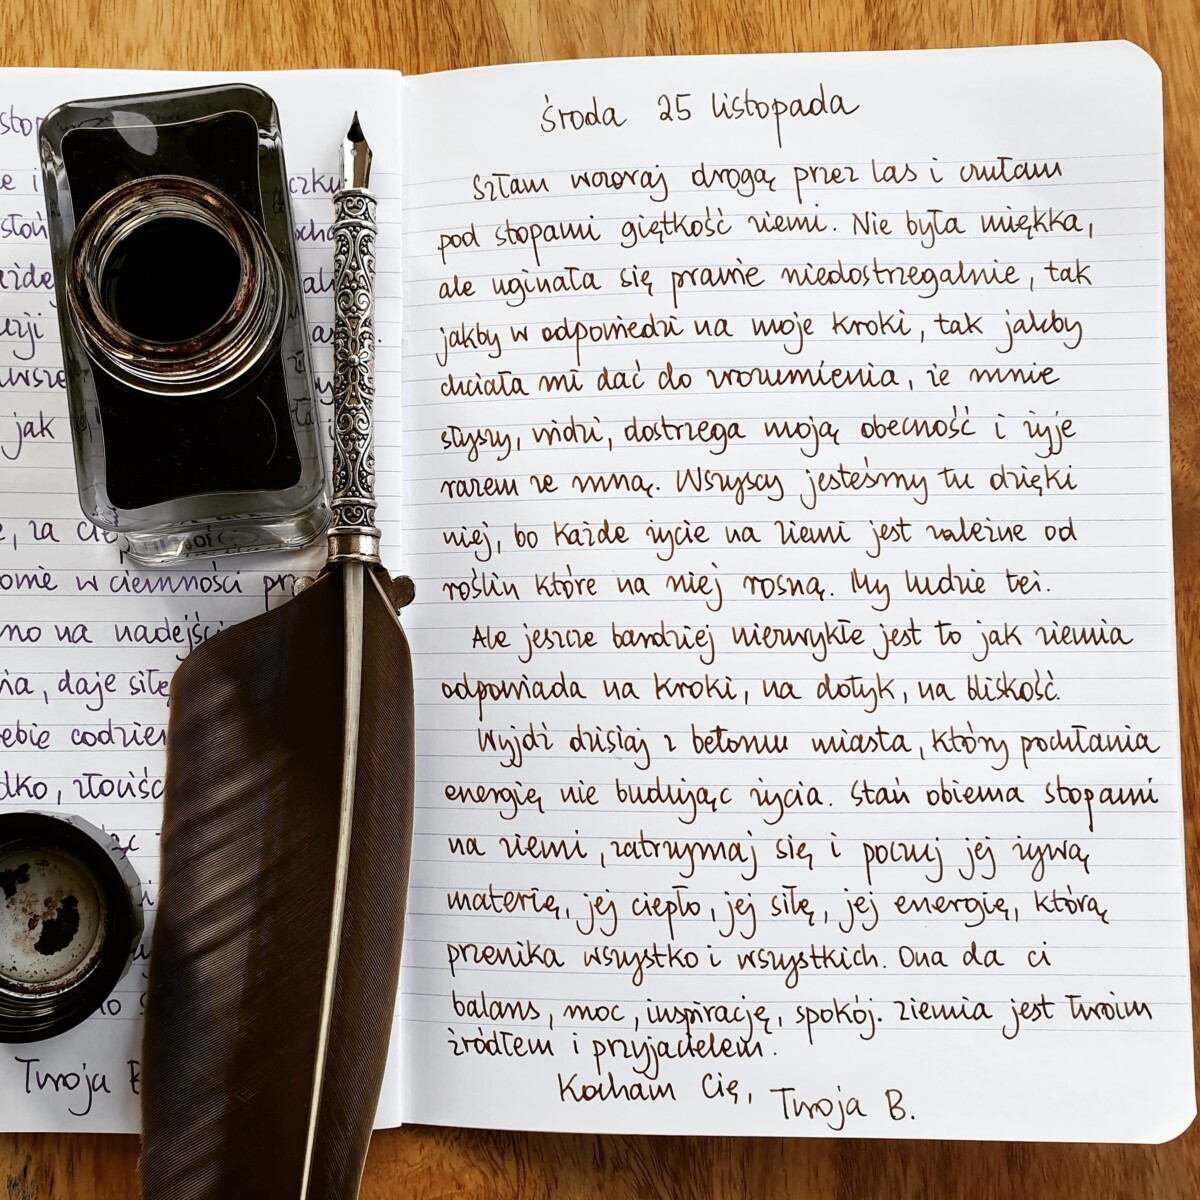 stop
e i czku
słoń ocha
wsze by
jak i
e, za cie
omie w ciemności prz
no na nadejści
nia, daje siłę
ebie codzien
dko, złośc
Twoja B
środa 25 listopada
Szłam wczoraj drogą przez las i czułam
pod stopami giętkość ziemi. Nie była miękka,
ale uginała się prawie niedostrzegalnie, tak
jakby w odpowiedzi na moje kroki, tak jakby
chciała mi dać do zrozumienia, że mnie
słyszy, widzi, dostrzega moją obecność i żyje
razem ze mną. Wszyscy jesteśmy tu dzięki
niej, bo każde życie na ziemi jest zależne od
roślin które na niej rosną. My ludzie też.
Ale jeszcze bardziej niezwykłe jest to jak ziemia
odpowiada na kroki, na dotyk, na bliskość.
Wyjdź dzisiaj z betonu miasta, który pochłania
energię nie budując życia. Stań obiema stopami
na ziemi, zatrzymaj się i poczuj jej żywą
materię, jej ciepło, jej siłę, jej energię, którą
przenika wszystko i wszystkich. Ona da ci
balans, moc, inspirację, spokój. Ziemia jest twoim
źródłem i przyjacielem.
Kocham Cię, Twoja B.